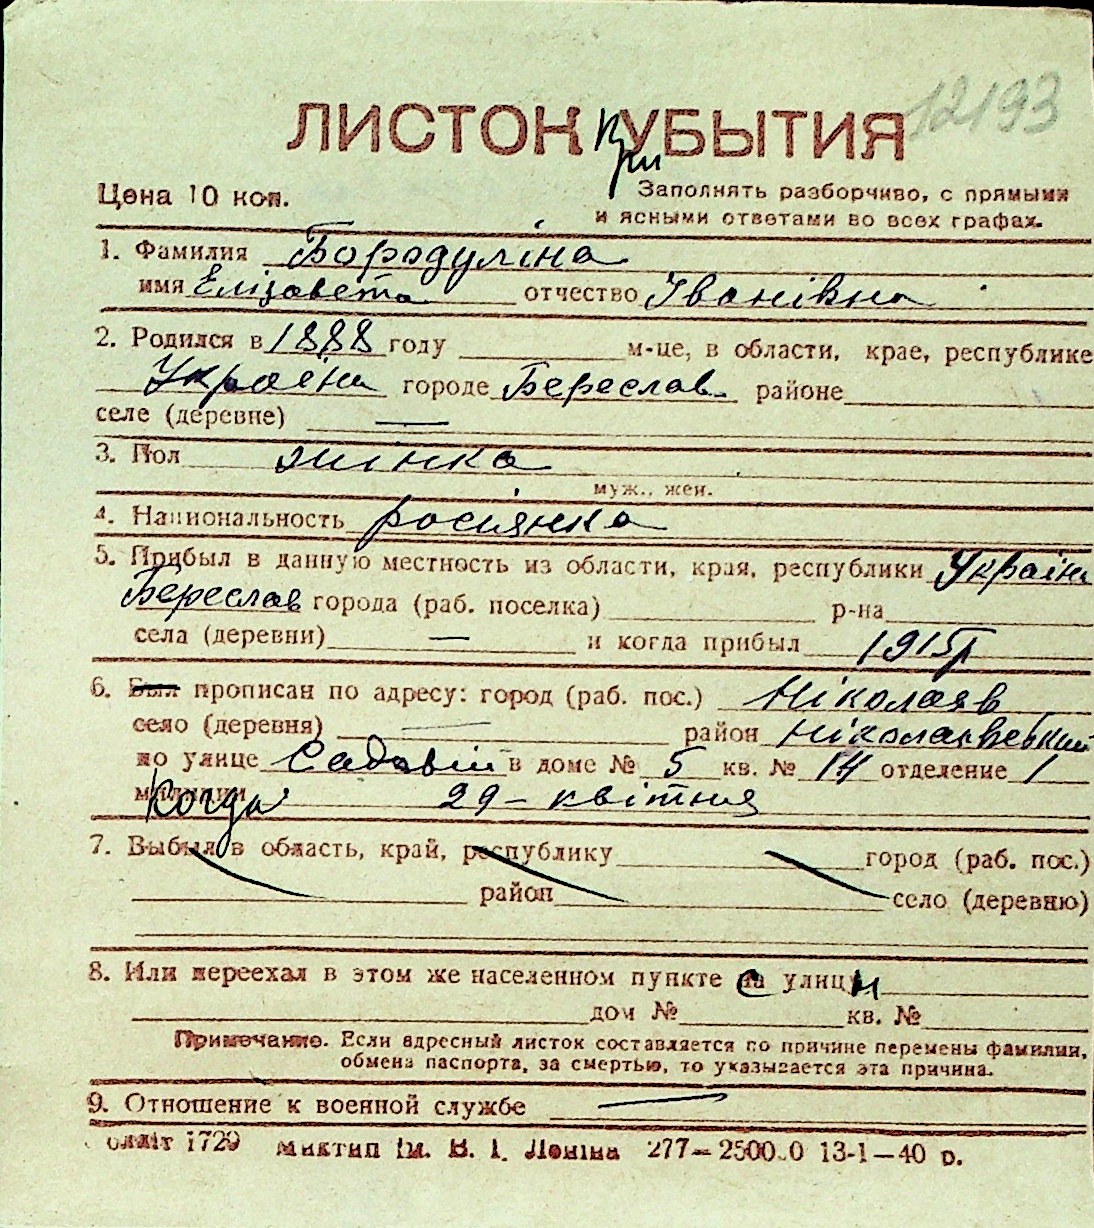 12193
ЛИСТОК При УБЫТИЯ
Цена 10 коп.
Заполнять разборчиво, с прямыми
и ясными ответами во всех графах.
1. Фамилия Бородуліна
имя Єлізавета отчество Іванівна
2. Родился в 1888 году м-це, в области, крае, республике
Україні городе Береслав районе
селе (деревне) —
3. Пол жінка
муж., жен.
4. Национальность росіянка
5. Прибыл в данную местность из области, края, республики Україні
Береслав города (раб. поселка) р-на
села (деревни) — и когда прибыл 1915р
6. Был прописан по адресу: город (раб. пос.) Ніколаяв
село (деревня) — район Ніколаєвський
по улице Садавій в доме № 5 кв. № 14 отделение 1
милиции Когда 29 – квітня
7. Выбыл в область, край, республику город (раб. пос.)
район село (деревню)
8. Или переехал в этом же населенном пункте с улицы
дом № кв. №
Примечание. Если адресный листок составляется по причине перемены фамилии,
обмена паспорта, за смертью, то указывается эта причина.
9. Отношение к военной службе —
Облліт 1729 Миктип ім. В. І. Леніна 277—250000 13-1—40 р.